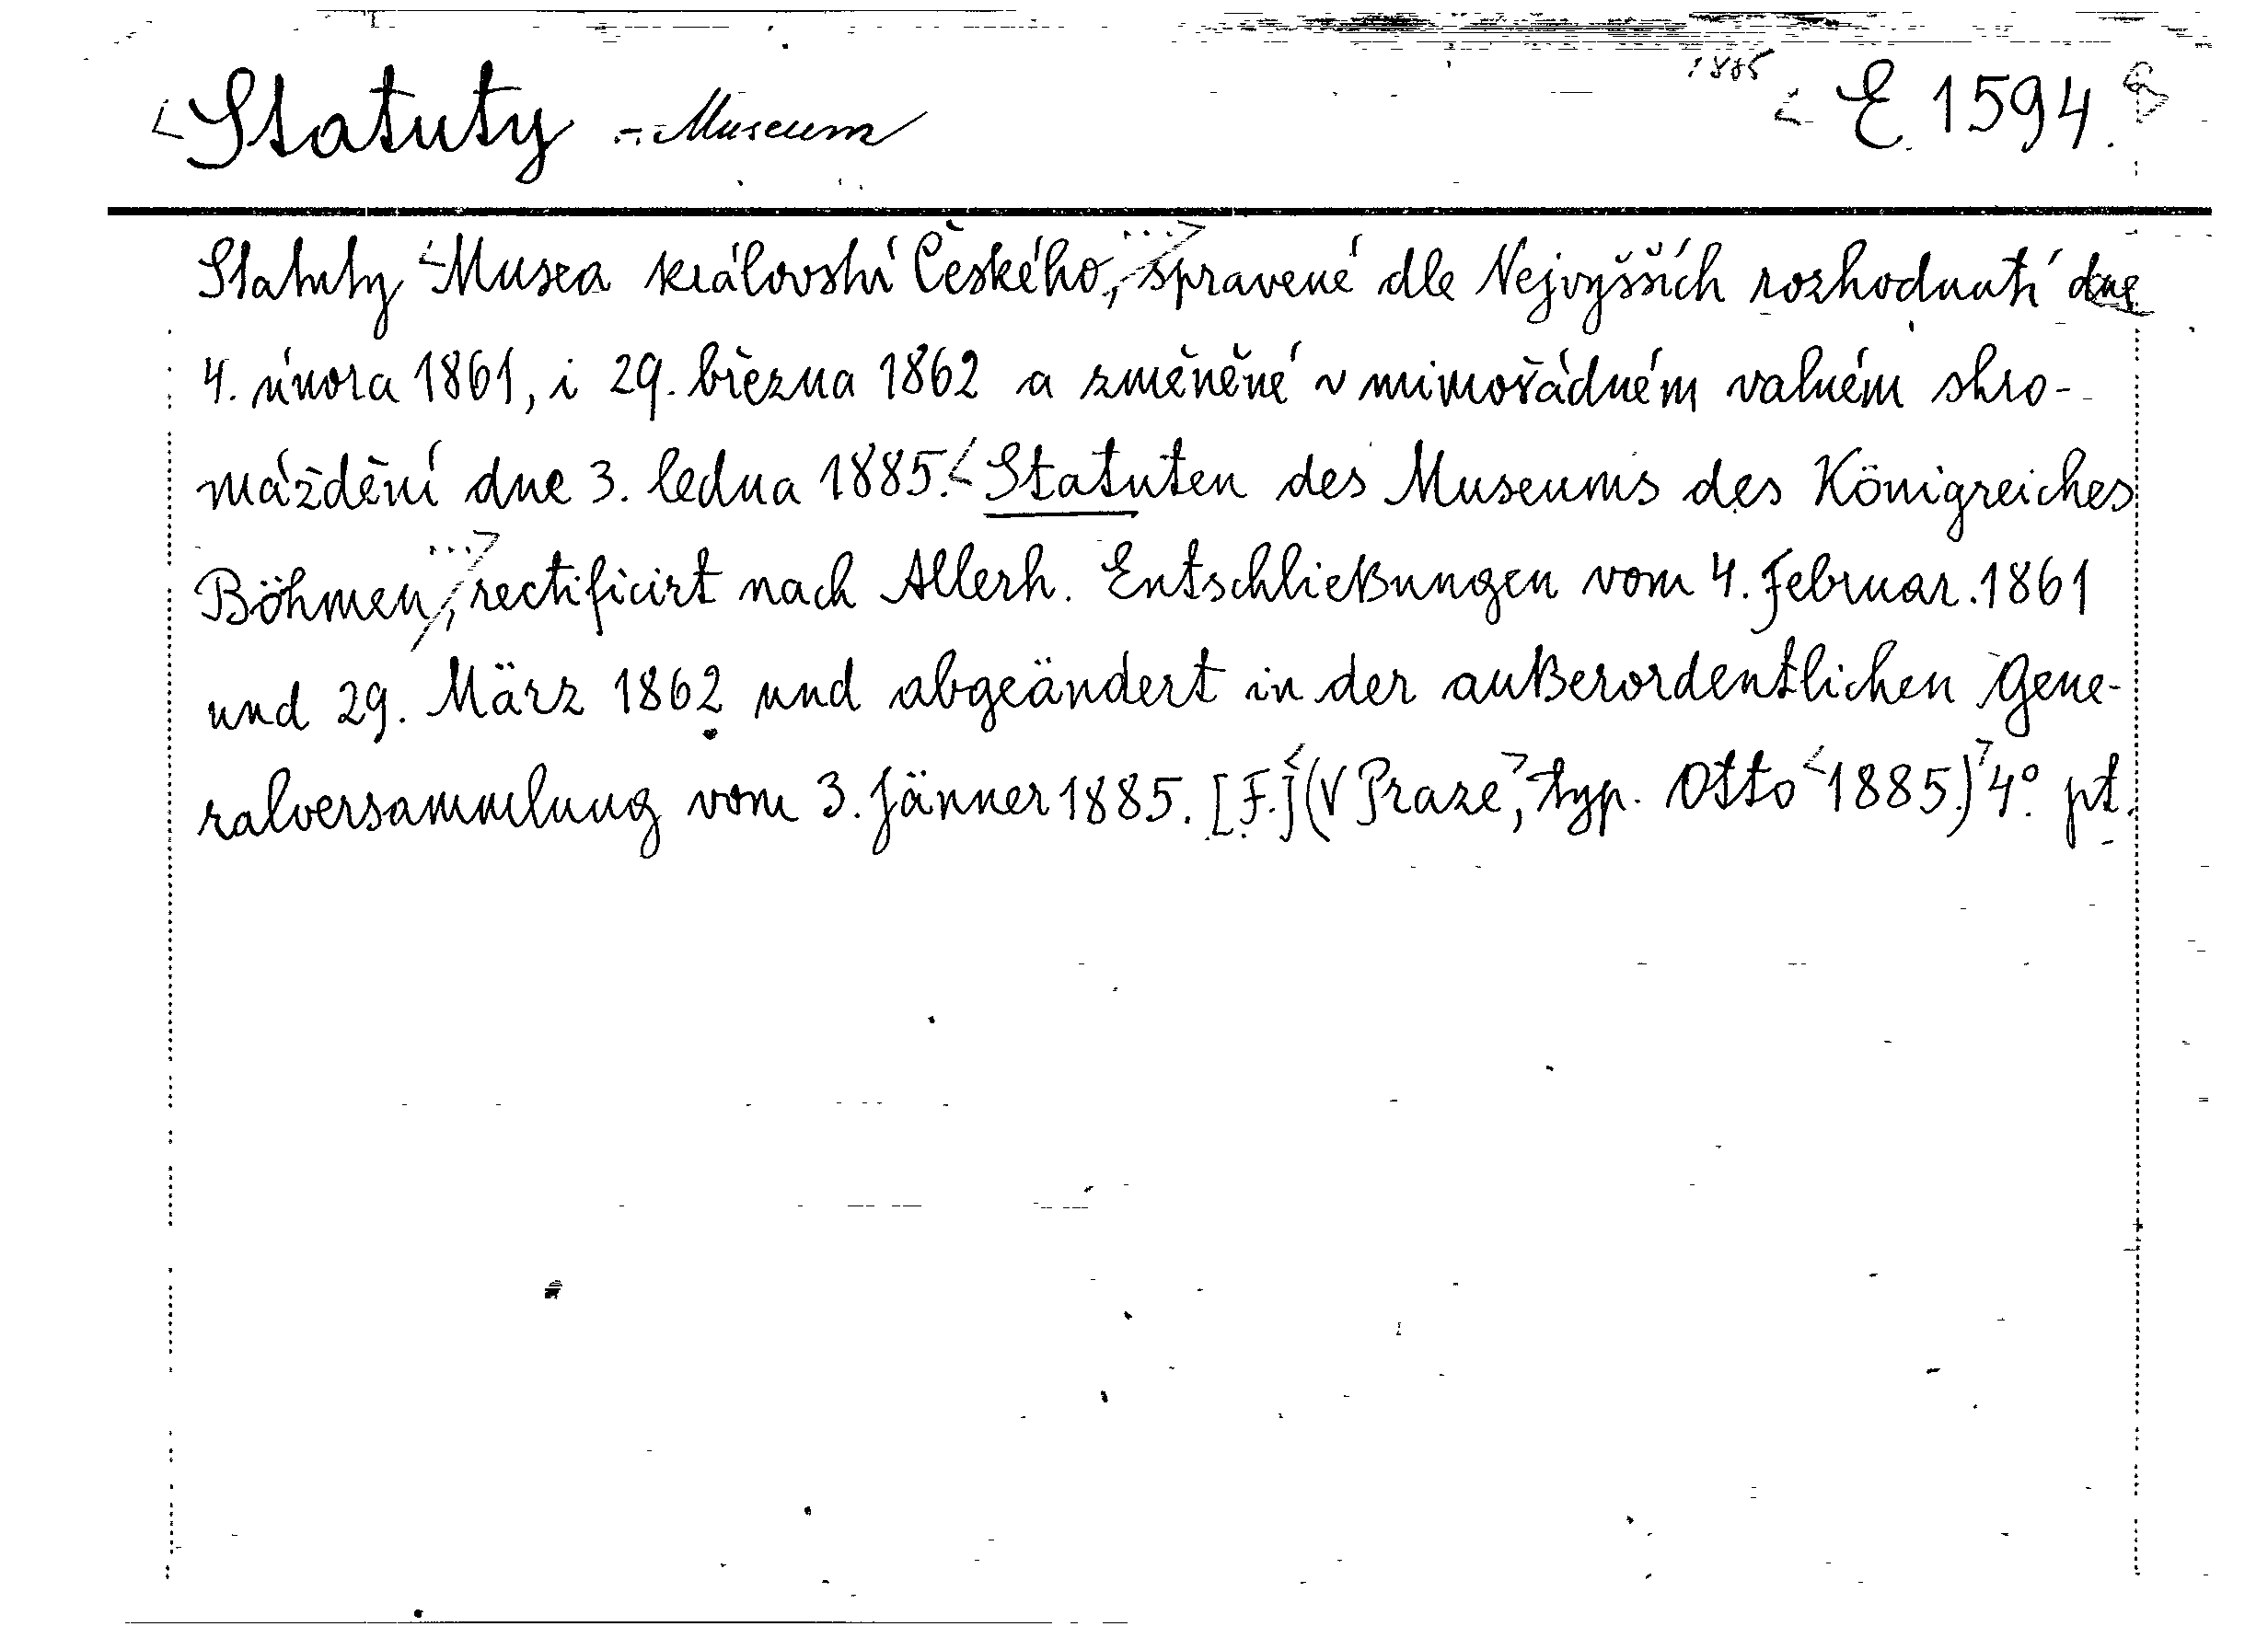 Statuty - Museum 1885 E 1594.
Statuty Musea království Českého, spravené dle Nejvyšších rozhodnutí dne
4. února 1861, i 29. března 1862 a změněné v mimořádném valném shro-
máždění dne 3. ledna 1885. Statuten des Museums des Königreiches
Böhmen, rectificirt nach Allerh. Entschließungen vom 4. Februar. 1861
und 29. März 1862 und abgeändert in der außerordentlichen Gene-
ralversammlung vom 3. Jänner 1885. [F.] (V Praze, typ. Otto 1885.) 4° pt.